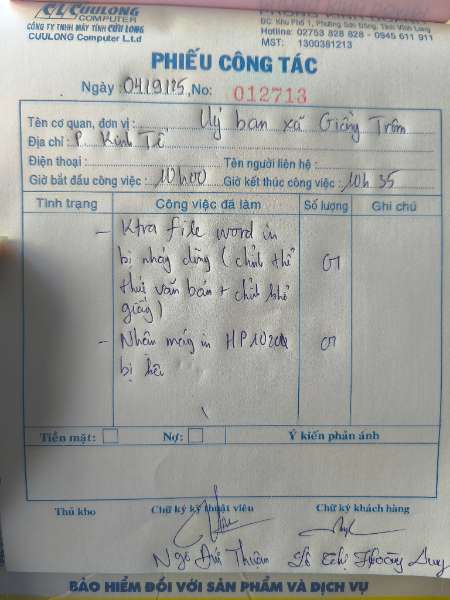 CUULONG
COMPUTER
CÔNG TY TNHH MÁY TÍNH CỬU LONG
CUULONG Computer L.t.d
ĐC: Khu Phố 1, Phường Sơn Đông, Tỉnh Vĩnh Long
Hotline: 02753 828 828 - 0945 611 911
MST: 1300381213
PHIẾU CÔNG TÁC
Ngày 04/9/25, No: 012713
Tên cơ quan, đơn vị: Uỷ ban xã Giồng Trôm
Địa chỉ: P. Kinh Tế
Điện thoại: Tên người liên hệ:
Giờ bắt đầu công việc: 10h00 Giờ kết thúc công việc: 10h 35
Tình trạng Công việc đã làm Số lượng Ghi chú
- Ktra file word in
bị nhảy dòng (chỉnh thể
thức văn bản + chỉnh khổ
giấy) 01
- Nhận máy in HP
bị 01
Tiền mặt: Nợ: Ý kiến phản ánh
Thủ kho Chữ ký kỹ thuật viên Chữ ký khách hàng
Ngô Đức Thuận Hoàng Duy
BẢO HIỂM ĐỐI VỚI SẢN PHẨM VÀ DỊCH VỤ